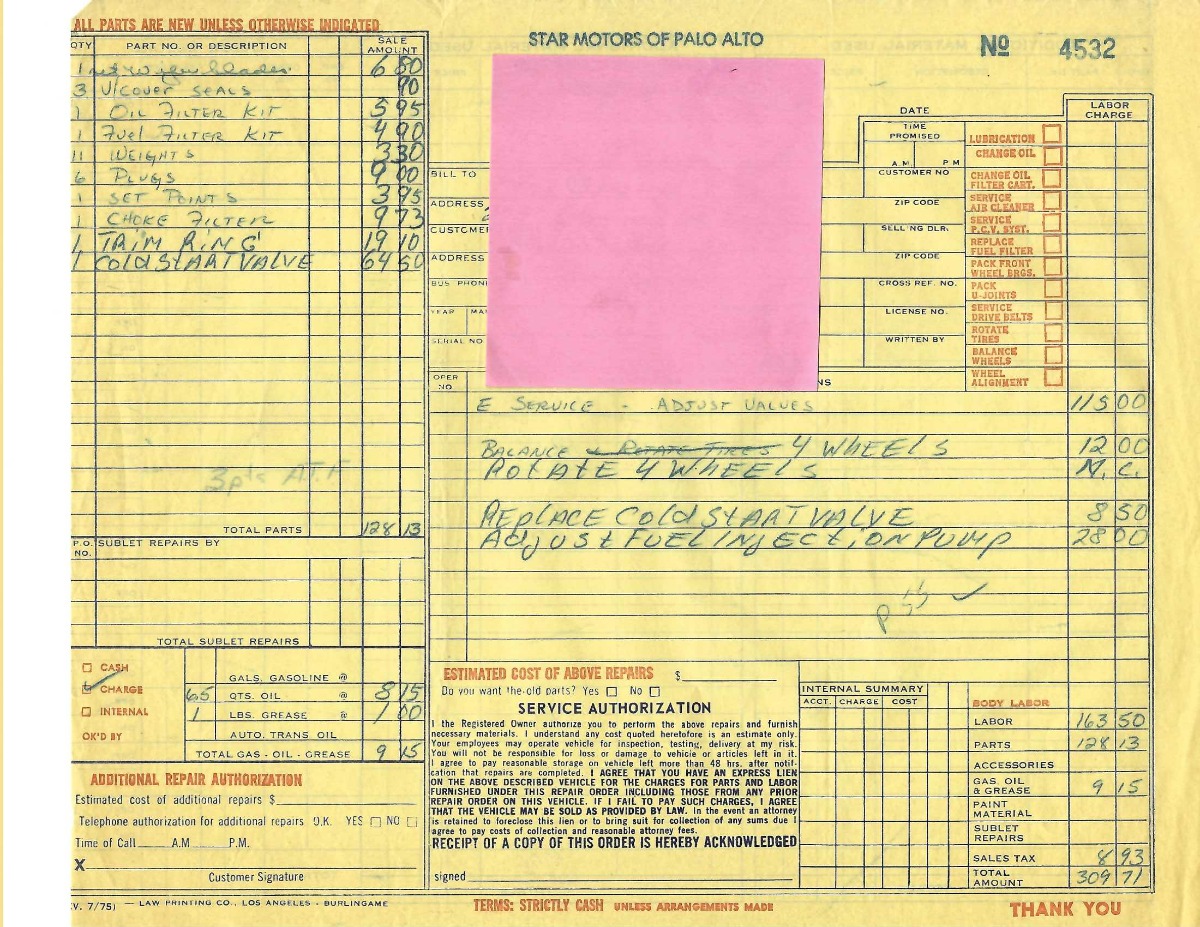 ALL PARTS ARE NEW UNLESS OTHERWISE INDICATED
QTY PART NO. OR DESCRIPTION SALE AMOUNT
1 blades 6 80
3 V/COVER SEALS 90
1 OIL FILTER KIT 5 95
1 FUEL FILTER KIT 4 90
11 WEIGHTS 3 30
6 PLUGS 9 00
1 SET POINTS 3 95
1 CHOKE FILTER 9 73
1 TRIM RING 19 10
1 COLD START VALVE 64 50
3 pts A.T.F
TOTAL PARTS 128 13
P.O. NO. SUBLET REPAIRS BY
TOTAL SUBLET REPAIRS
CASH
CHARGE
INTERNAL
OK'D BY
GALS. GASOLINE @
65 QTS. OIL @ 8 15
1 LBS. GREASE @ 1 00
AUTO. TRANS OIL
TOTAL GAS - OIL - GREASE 9 15
ADDITIONAL REPAIR AUTHORIZATION
Estimated cost of additional repairs $
Telephone authorization for additional repairs O.K. YES NO
Time of Call A.M P.M.
X
Customer Signature
V. 7/75) — LAW PRINTING CO., LOS ANGELES - BURLINGAME
STAR MOTORS OF PALO ALTO
No 4532
DATE
LABOR CHARGE
TIME PROMISED
A.M. P M
BILL TO
CUSTOMER NO
ADDRESS
ZIP CODE
CUSTOME
SELLING DLR.
ADDRESS
ZIP CODE
BUS PHON
CROSS REF. NO.
YEAR MA
LICENSE NO.
SERIAL NO
WRITTEN BY
LUBRICATION
CHANGE OIL
CHANGE OIL FILTER CART.
SERVICE AIR CLEANER
SERVICE P.C.V. SYST.
REPLACE FUEL FILTER
PACK FRONT WHEEL BRGS.
PACK U-JOINTS
SERVICE DRIVE BELTS
ROTATE TIRES
BALANCE WHEELS
WHEEL ALIGNMENT
OPER NO
NS
E SERVICE - ADJUST VALVES 115 00
BALANCE & ROTATE TIRES 4 WHEELS 12 00
ROTATE 4 WHEELS N.C.
REPLACE COLD START VALVE 8 50
ADJUST FUEL INJECTION PUMP 28 00
ESTIMATED COST OF ABOVE REPAIRS $
Do you want the old parts? Yes No
SERVICE AUTHORIZATION
I the Registered Owner authorize you to perform the above repairs and furnish
necessary materials. I understand any cost quoted heretofore is an estimate only.
Your employees may operate vehicle for inspection, testing, delivery at my risk.
You will not be responsible for loss or damage to vehicle or articles left in it.
I agree to pay reasonable storage on vehicle left more than 48 hrs. after notif-
cation that repairs are completed. I AGREE THAT YOU HAVE AN EXPRESS LIEN
ON THE ABOVE DESCRIBED VEHICLE FOR THE CHARGES FOR PARTS AND LABOR
FURNISHED UNDER THIS REPAIR ORDER INCLUDING THOSE FROM ANY PRIOR
REPAIR ORDER ON THIS VEHICLE. IF I FAIL TO PAY SUCH CHARGES, I AGREE
THAT THE VEHICLE MAY BE SOLD AS PROVIDED BY LAW. In the event an attorney
is retained to foreclose this lien or to bring suit for collection of any sums due I
agree to pay costs of collection and reasonable attorney fees.
RECEIPT OF A COPY OF THIS ORDER IS HEREBY ACKNOWLEDGED
signed
INTERNAL SUMMARY
ACCT. CHARGE COST
BODY LABOR
LABOR 163 50
PARTS 128 13
ACCESSORIES
GAS. OIL & GREASE 9 15
PAINT MATERIAL
SUBLET REPAIRS
SALES TAX 8 93
TOTAL AMOUNT 309 71
TERMS: STRICTLY CASH UNLESS ARRANGEMENTS MADE
THANK YOU